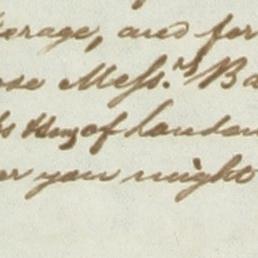 erage, and for
ose Messrs. Ba
of London
er you might